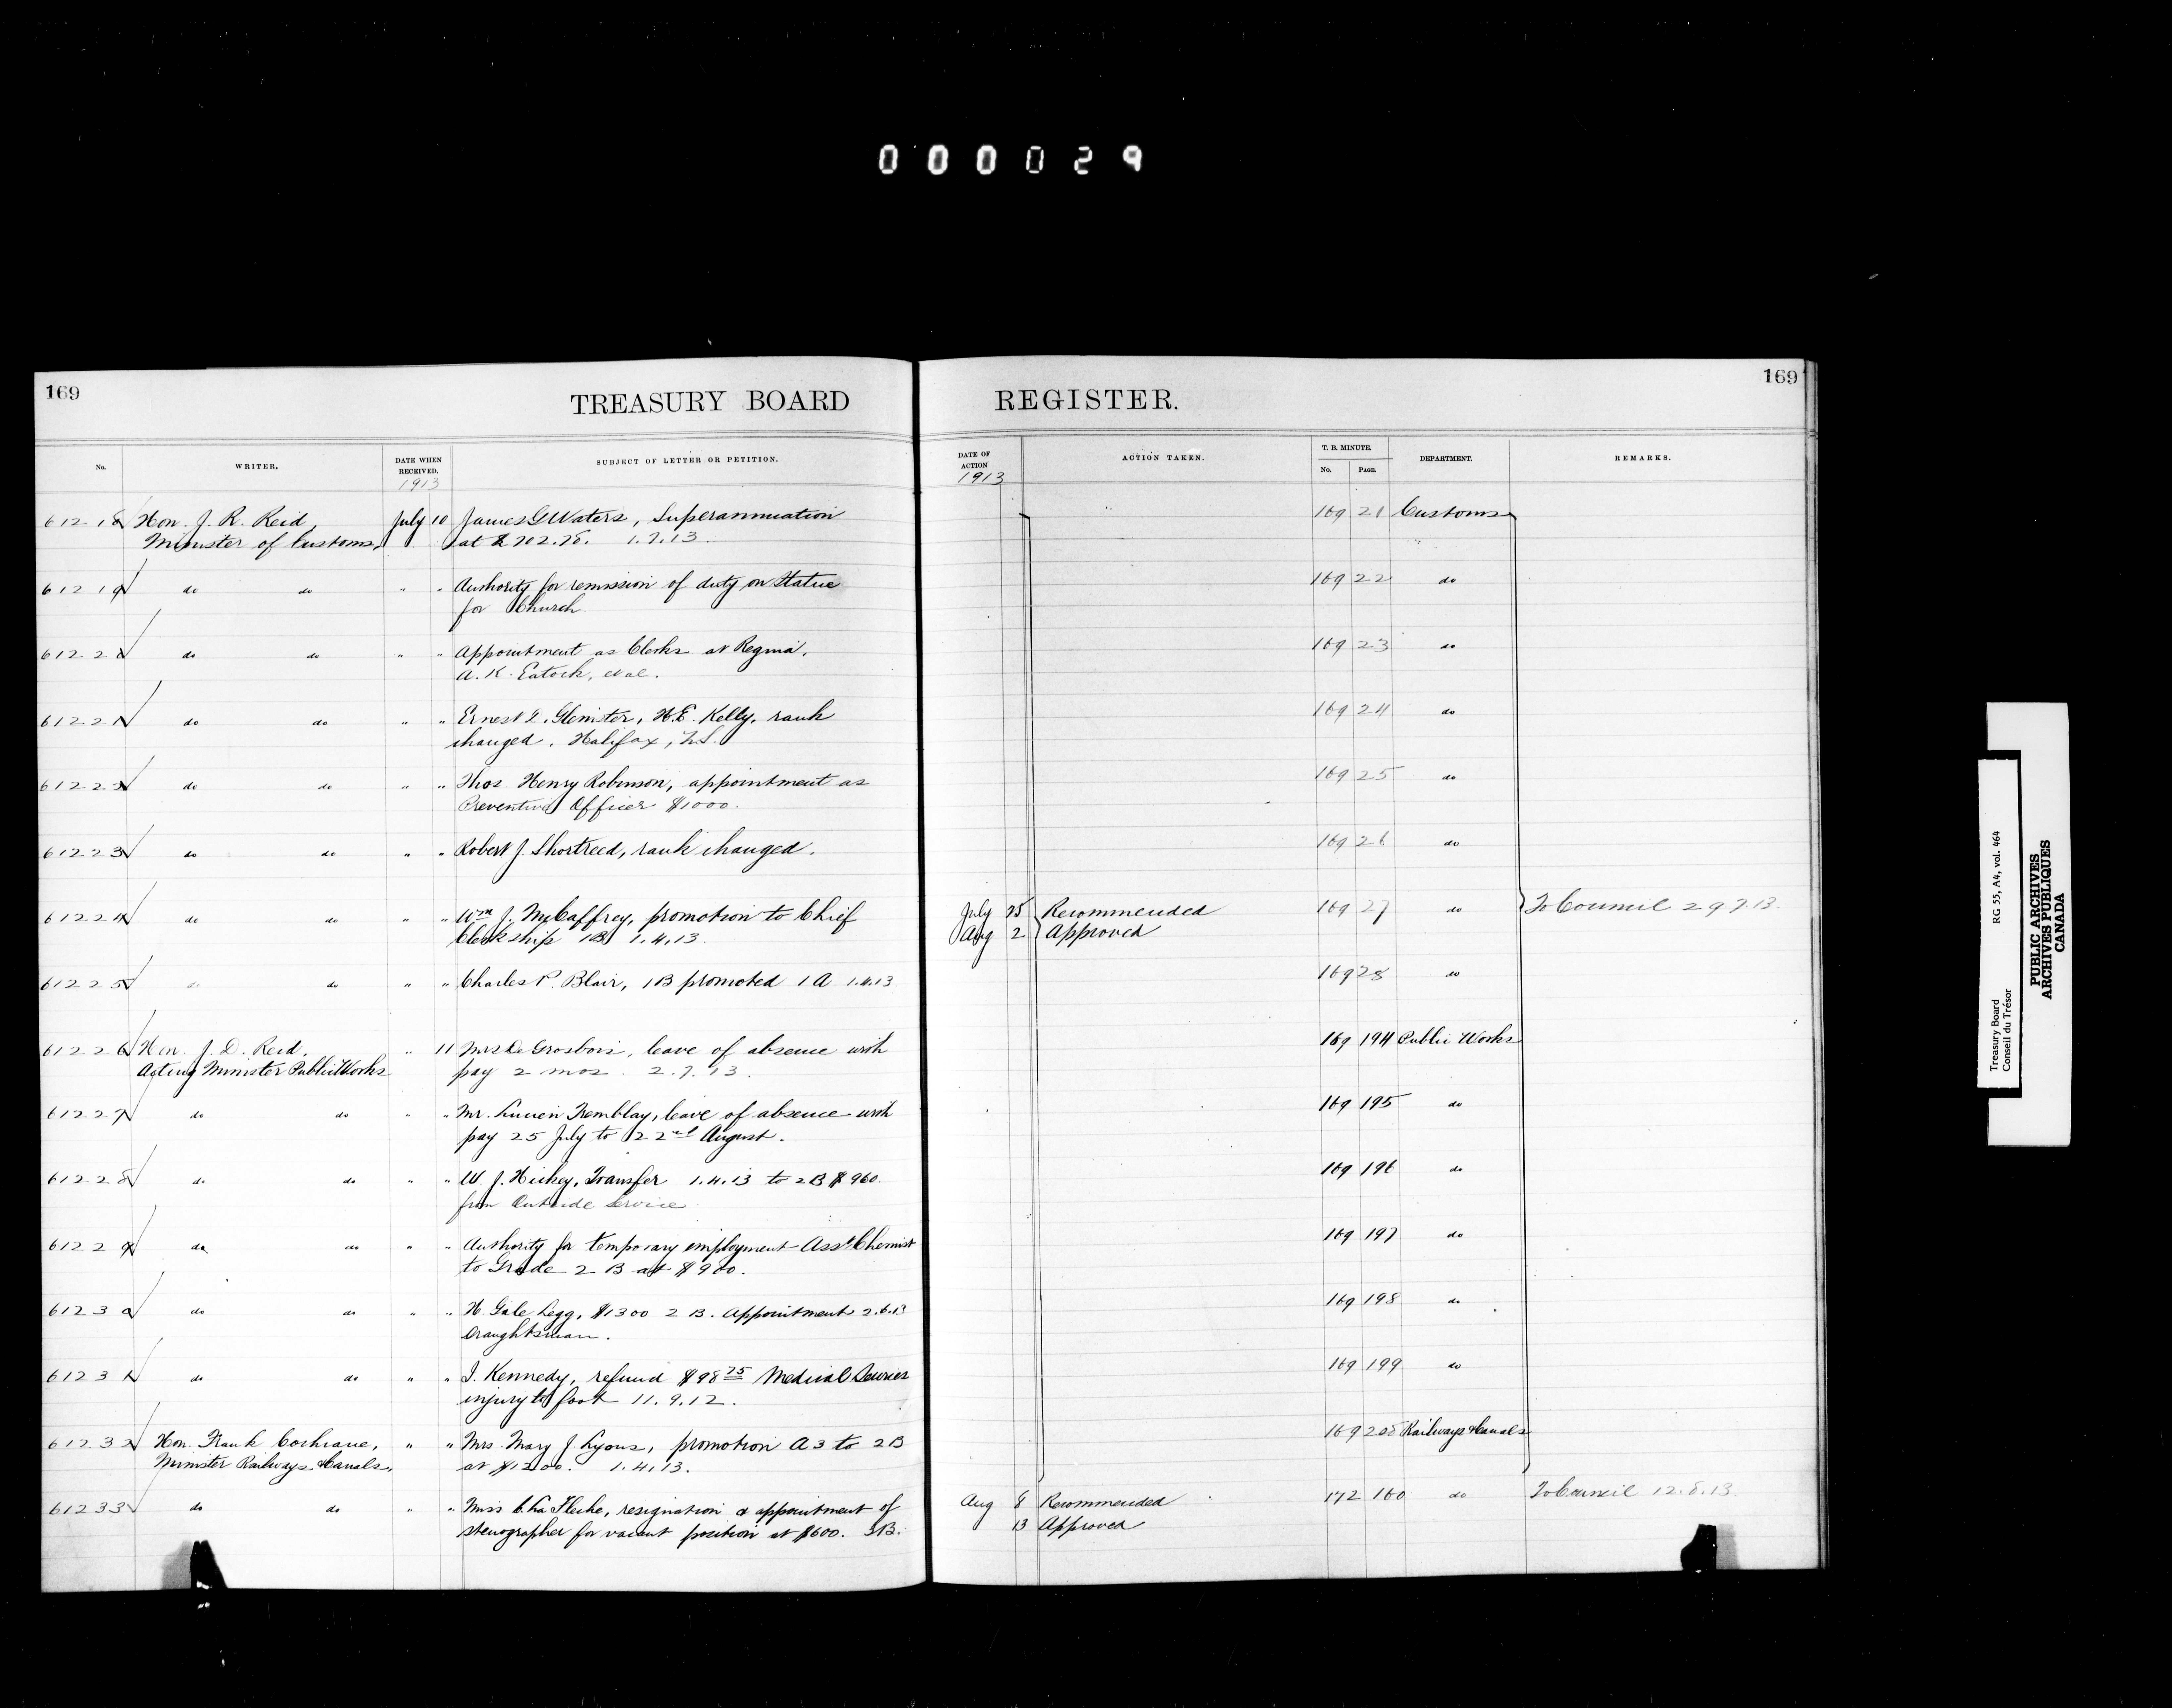 000029
169
TREASURY BOARD
REGISTER.
169
No.
WRITER.
DATE WHEN RECEIVED.
1913
SUBJECT OF LETTER OR PETITION.
DATE OF ACTION
1913
ACTION TAKEN.
T. B. MINUTE.
No.
PAGE.
DEPARTMENT.
REMARKS.
61218 Hon. J. R. Reid, July 10 James G Waters, Superannuation 169 21 Customs
Minister of Customs, at $702.78. 1.7.13
61219 do do " " Authority for remission of duty on Statue 169 22 do
for Church
6122 do do " " Appointment as Clerks at Regina. 169 23 do
A. K. Eatock, et al.
61221 do do " " Ernest Glenister, H.E. Kelly, rank 169 24 do
changed. Halifax, N.S.
61222 do do " " Thos Henry Robinson, appointment as 169 25 do
Preventive Officer $1000.
61223 do do " " Robert J. Shortreed, rank changed. 169 26 do
61224 do do " " Wm J. McCaffrey, promotion to Chief July 25 Recommended 169 27 do To Council 29.7.13
Clerkship 1B 1.4.13. Aug 2 Approved
61225 do do " " Charles P. Blair, 1B promoted 1A 1.4.13 169 28 do
61226 Hon. J. D. Reid, " 11 Mrs De Grosbois, leave of absence with 169 194 Public Works
Acting Minister Public Works pay 2 mos. 2.7.13.
61227 do do " " Mr. Lucien Tremblay, leave of absence with 169 195 do
pay 25 July to 22nd August.
61228 do do " " W. J. Hickey, Transfer 1.4.13 to 2B $960. 169 196 do
from Outside Service
61229 do do " " Authority for temporary employment Asst Chemist 169 197 do
to Grade 2 B at $900.
61230 do do " " H Gale Legg, $1300 2 B. Appointment 2.6.13 169 198 do
Draughtsman.
61231 do do " " J. Kennedy, refund $98 75 Medical Services 169 199 do
injury to foot 11.9.12.
61232 Hon. Frank Cochrane, " " Mrs. Mary J. Lyons, promotion A3 to 2B 169 200 Railways & Canals
Minister Railways & Canals, at $1200. 1.4.13.
61233 do do " " Miss C. La Fleche, resignation & appointment of Aug 8 Recommended 172 160 do To Council 12.8.13
stenographer for vacant position at $600. 3B. 13 Approved
Treasury Board RG 55, A4, vol. 464
Conseil du Trésor
PUBLIC ARCHIVES
ARCHIVES PUBLIQUES
CANADA